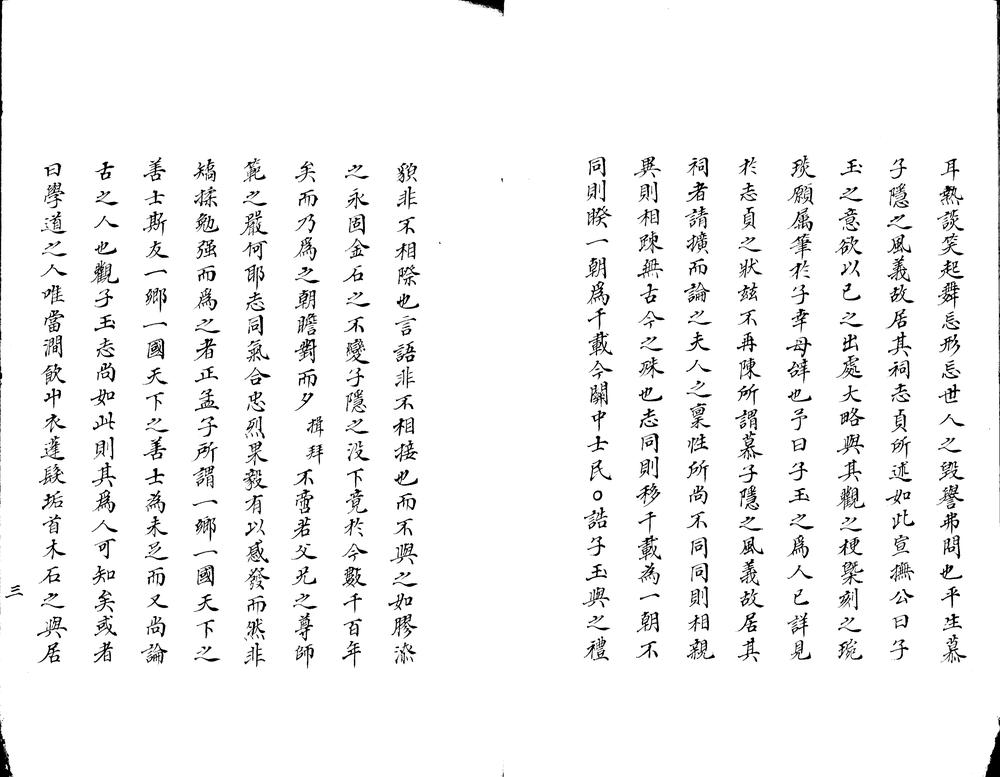 耳熱談笑起舞忘形忘世人之毀譽弗問也平生慕
子隱之風義故居其祠志貞所述如此宣撫公曰子
玉之意欲以已之出處大略與其觀之梗槩刻之琬
琰願属筆於子幸毋辞也予曰子玉之爲人已詳見
於志貞之狀兹不再陳所謂慕子隱之風義故居其
祠者請擴而論之夫人之稟性所尚不同同則相親
異則相踈無古今之殊也志同則移千載為一朝不
同則暌一朝爲千載今關中士民○誥子玉與之禮
貌非不相際也言語非不相接也而不與之如膠漆
之永固金石之不變子隱之没下竟於今數千百年
矣而乃爲之朝瞻對而夕 揖拜 不啻若父兄之尊師
範之嚴何耶志同氣合忠烈果毅有以感發而然非
矯揉勉强而爲之者正孟子所謂一鄉一國天下之
善士斯友一鄉一國天下之善士為未足而又尚論
古之人也觀子玉志尚如此則其爲人可知矣或者
曰學道之人唯當澗飲中衣蓬髮垢首木石之與居
三